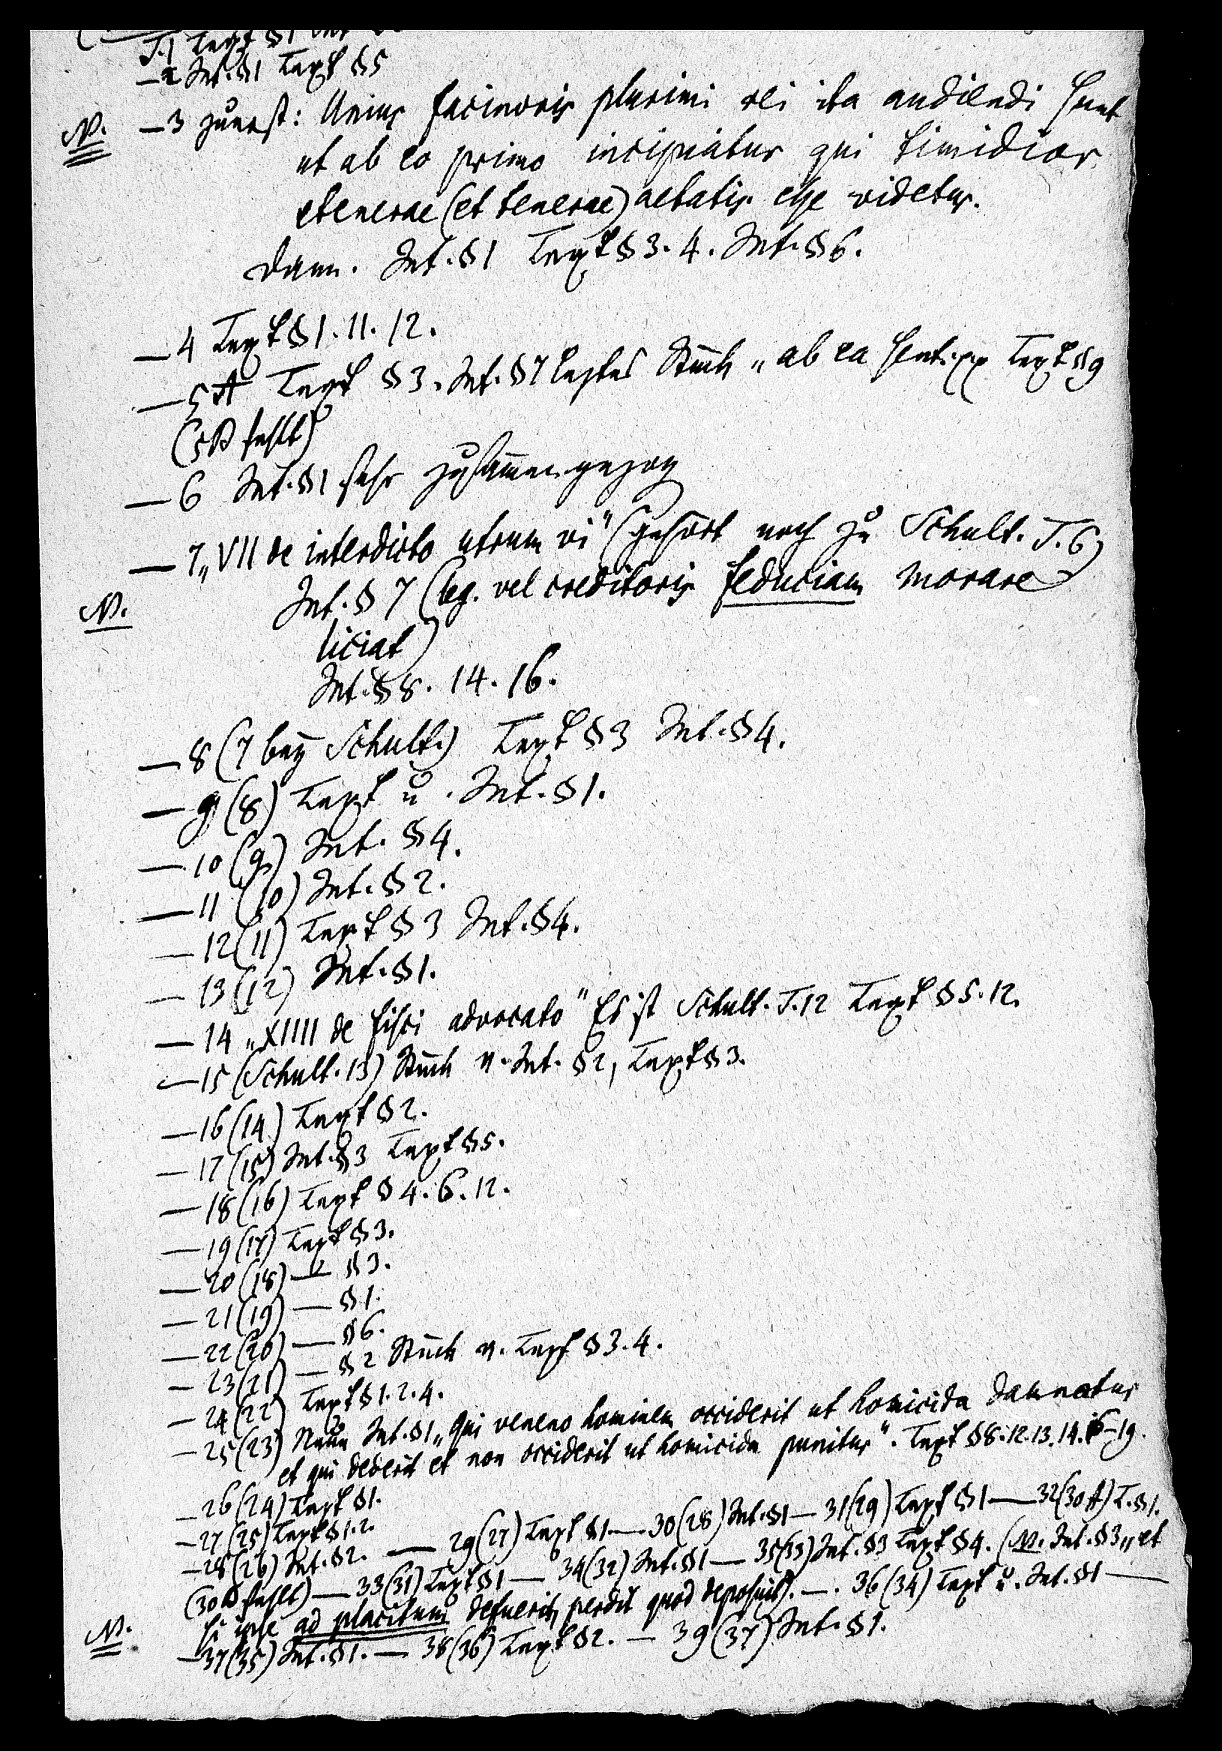 T. 1 Text §1 Int
— 2 Int. §1 Text §5
N. — 3 zuerst: Unius facinoris plurimi rei ita audiendi sunt
ut ab eo primo incipiatur qui timidior
etenerae (et tenerae) aetatis esse videtur.
dann. Int. §1 Text §3. 4. Int. §6.
— 4 Text §1. 11. 12.
— 5A Text §3. Int. §7 letztes Stück „ab ea sent. pp Text §9
(5B fehlt)
— 6 Int. §1 sehr zusammengezog
— 7 „VII de interdicto utrum vi" (gehört noch zu Schult. T. 6)
N. Int. §7 (leg. vel creditoris feduciam morare
liciat)
Int. §8. 14. 16.
— 8 (7 bey Schult.) Text §3 Int. §4.
— 9 (8) Text u. Int. §1.
— 10 (9) Int. §4.
— 11 (10) Int. §2.
— 12 (11) Text §3 Int. §4.
— 13 (12) Int. §1.
— 14 „XIIII de fisci advocato" Es ist Schult. T. 12 Text §5. 12.
— 15 (Schult. 13) Stück v. Int. §2, Text §3.
— 16 (14) Text §2.
— 17 (15) Int. §3 Text §5.
— 18 (16) Text §4. 6. 12.
— 19 (17) Text §3.
— 20 (18) — §3.
— 21 (19) — §1.
— 22 (20) — §6.
— 23 (21) — §2 Stück v. Text §3. 4.
— 24 (22) Text §1. 2. 4.
— 25 (23) Int. §1 „Qui veneno hominem occiderit ut homicida damnatur
et qui dederit et non occiderit ut homicida punitur". Text §8. 12. 13. 14. 16–19.
— 26 (24) Text §1.
— 27 (25) Text §1. 2.
— 28 (26) Int. §2. — 29 (27) Text §1 — 30 (28) Int. §1 — 31 (29) Text §1 — 32 (30A) T. §1.
(30B fehlt) — 33 (31) Text §1 — 34 (32) Int. §1 — 35 (33) Int. §3 Text §4. (N. Int. §3 „et
N. si ipse ad placitum defuerit, perdit quod deposuit). — 36 (34) Text u. Int. §1 —
— 37 (35) Int. §1. — 38 (36) Text §2. — 39 (37) Int. §1.